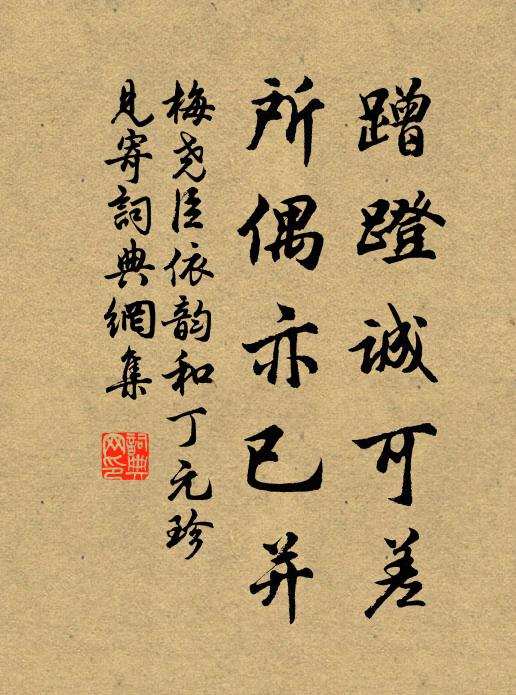 蹭蹬诚可差
所偶亦已并
梅尧臣依韵和丁元珍
见寄词典网集
詞典网印